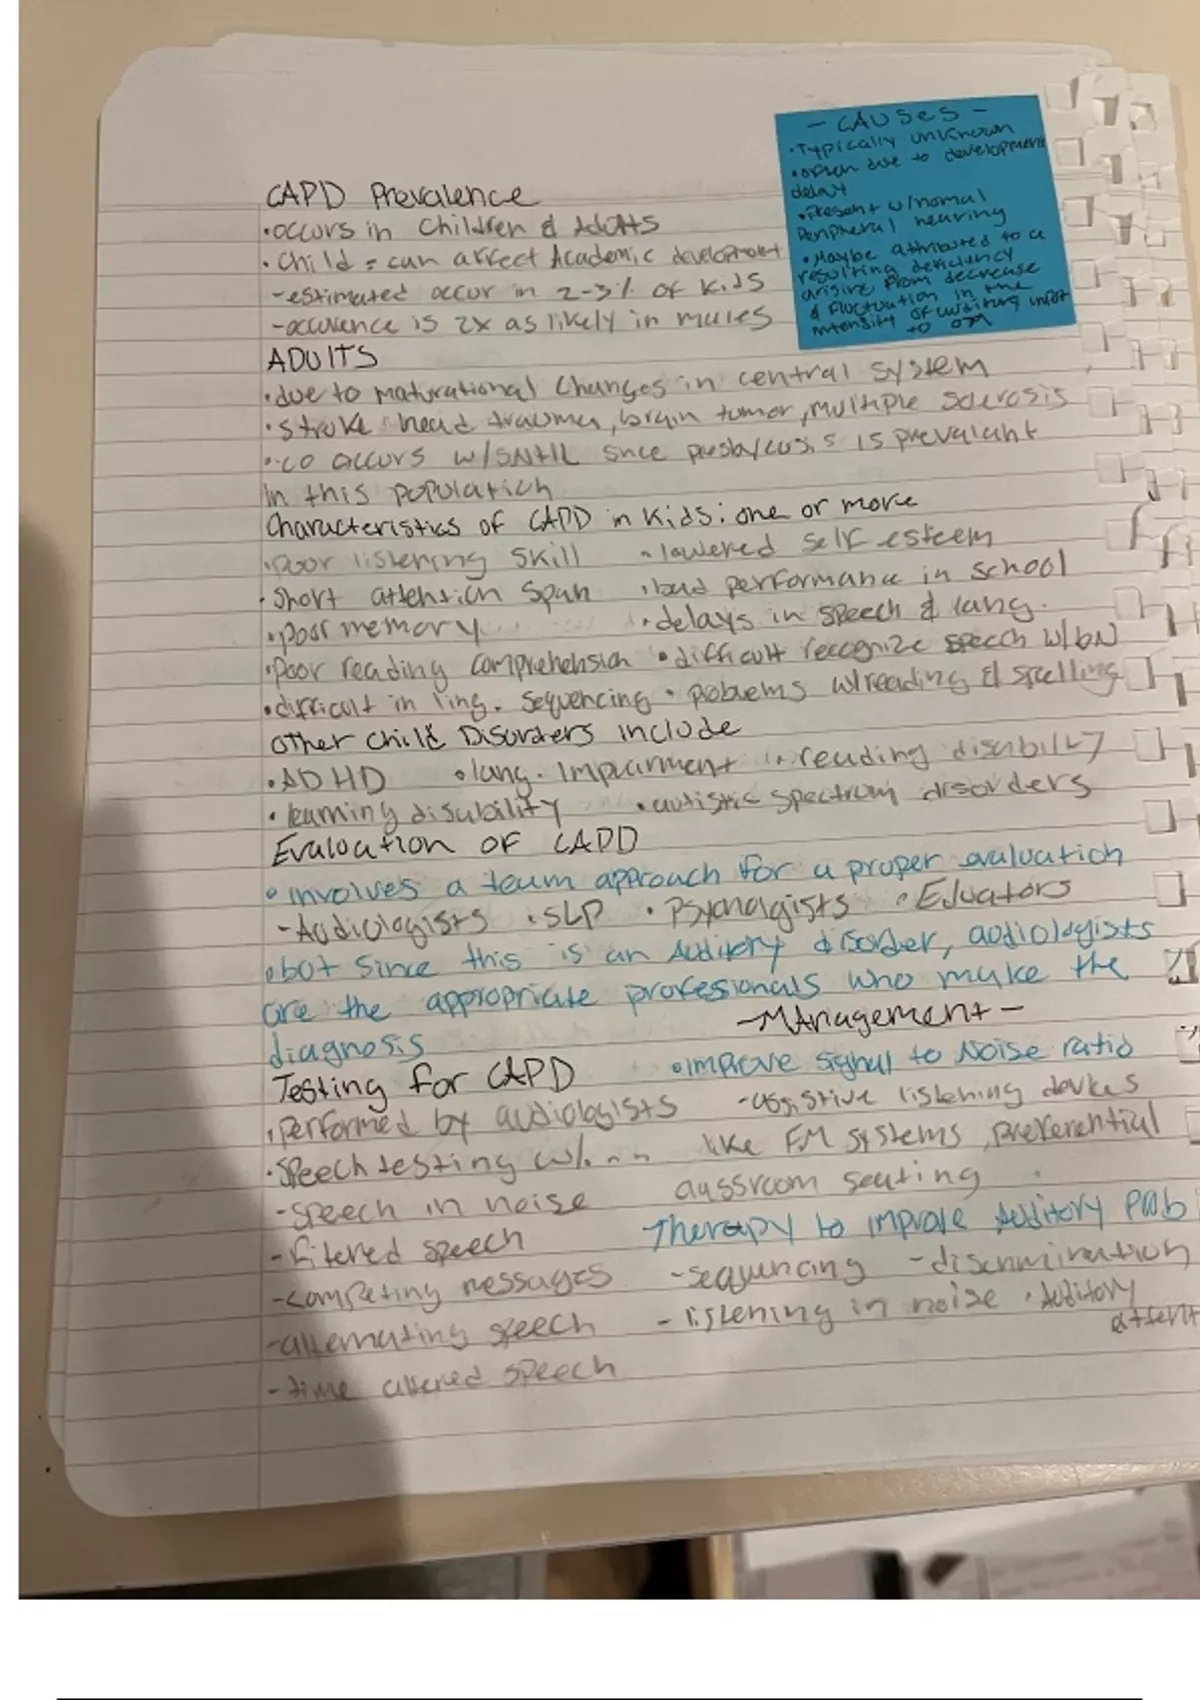 CAPD Prevalence
•occurs in Children & Adults
• Child = can affect Academic development
-estimated occur in 2-3% of kids
-occurence is 2x as likely in males
ADUITS
•due to maturational Changes in central system
•stroke head trauma, brain tumor, multiple sclerosis
•co occurs w/SNHL since presbycusis is prevalant
in this population
Characteristics of CAPD in kids: one or more
•poor listening skill •lowered self esteem
•short attention span •bad performance in school
•poor memory •delays in speech & lang.
•poor reading comprehension •difficult recognize speech w/bN
•difficult in ling. sequencing • problems w/reading & spelling
other child Disorders include
•ADHD •lang. impairment •reading disability
•learning disability •autistic spectrum disorders
Evaluation of CAPD
•involves a team approach for a proper evaluation
-Audiologists •SLP •Psychologists •Educators
•but since this is an Auditory disorder, audiologists
are the appropriate professionals who make the
diagnosis
Testing for CAPD
•performed by audiologists
•speech testing w/
-speech in noise
-filtered speech
-competing messages
-alternating speech
-time altered speech
-Management-
•improve signal to Noise ratio
-assistive listening devices
like FM systems, preferential
classroom seating
Therapy to improve Auditory prob
-sequencing -discrimination
-listening in noise •Auditory
attent
-CAUSES-
•Typically unknown
•often due to development
delay
•Present w/normal
Peripheral hearing
•Maybe attributed to a
resulting deficiency
arising from decrease
& fluctuation in the
intensity of auditory input
to